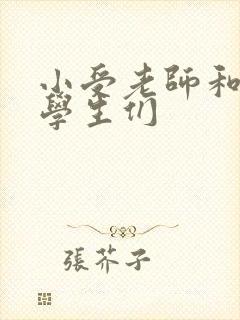 小受老師和
學生们
張芥子